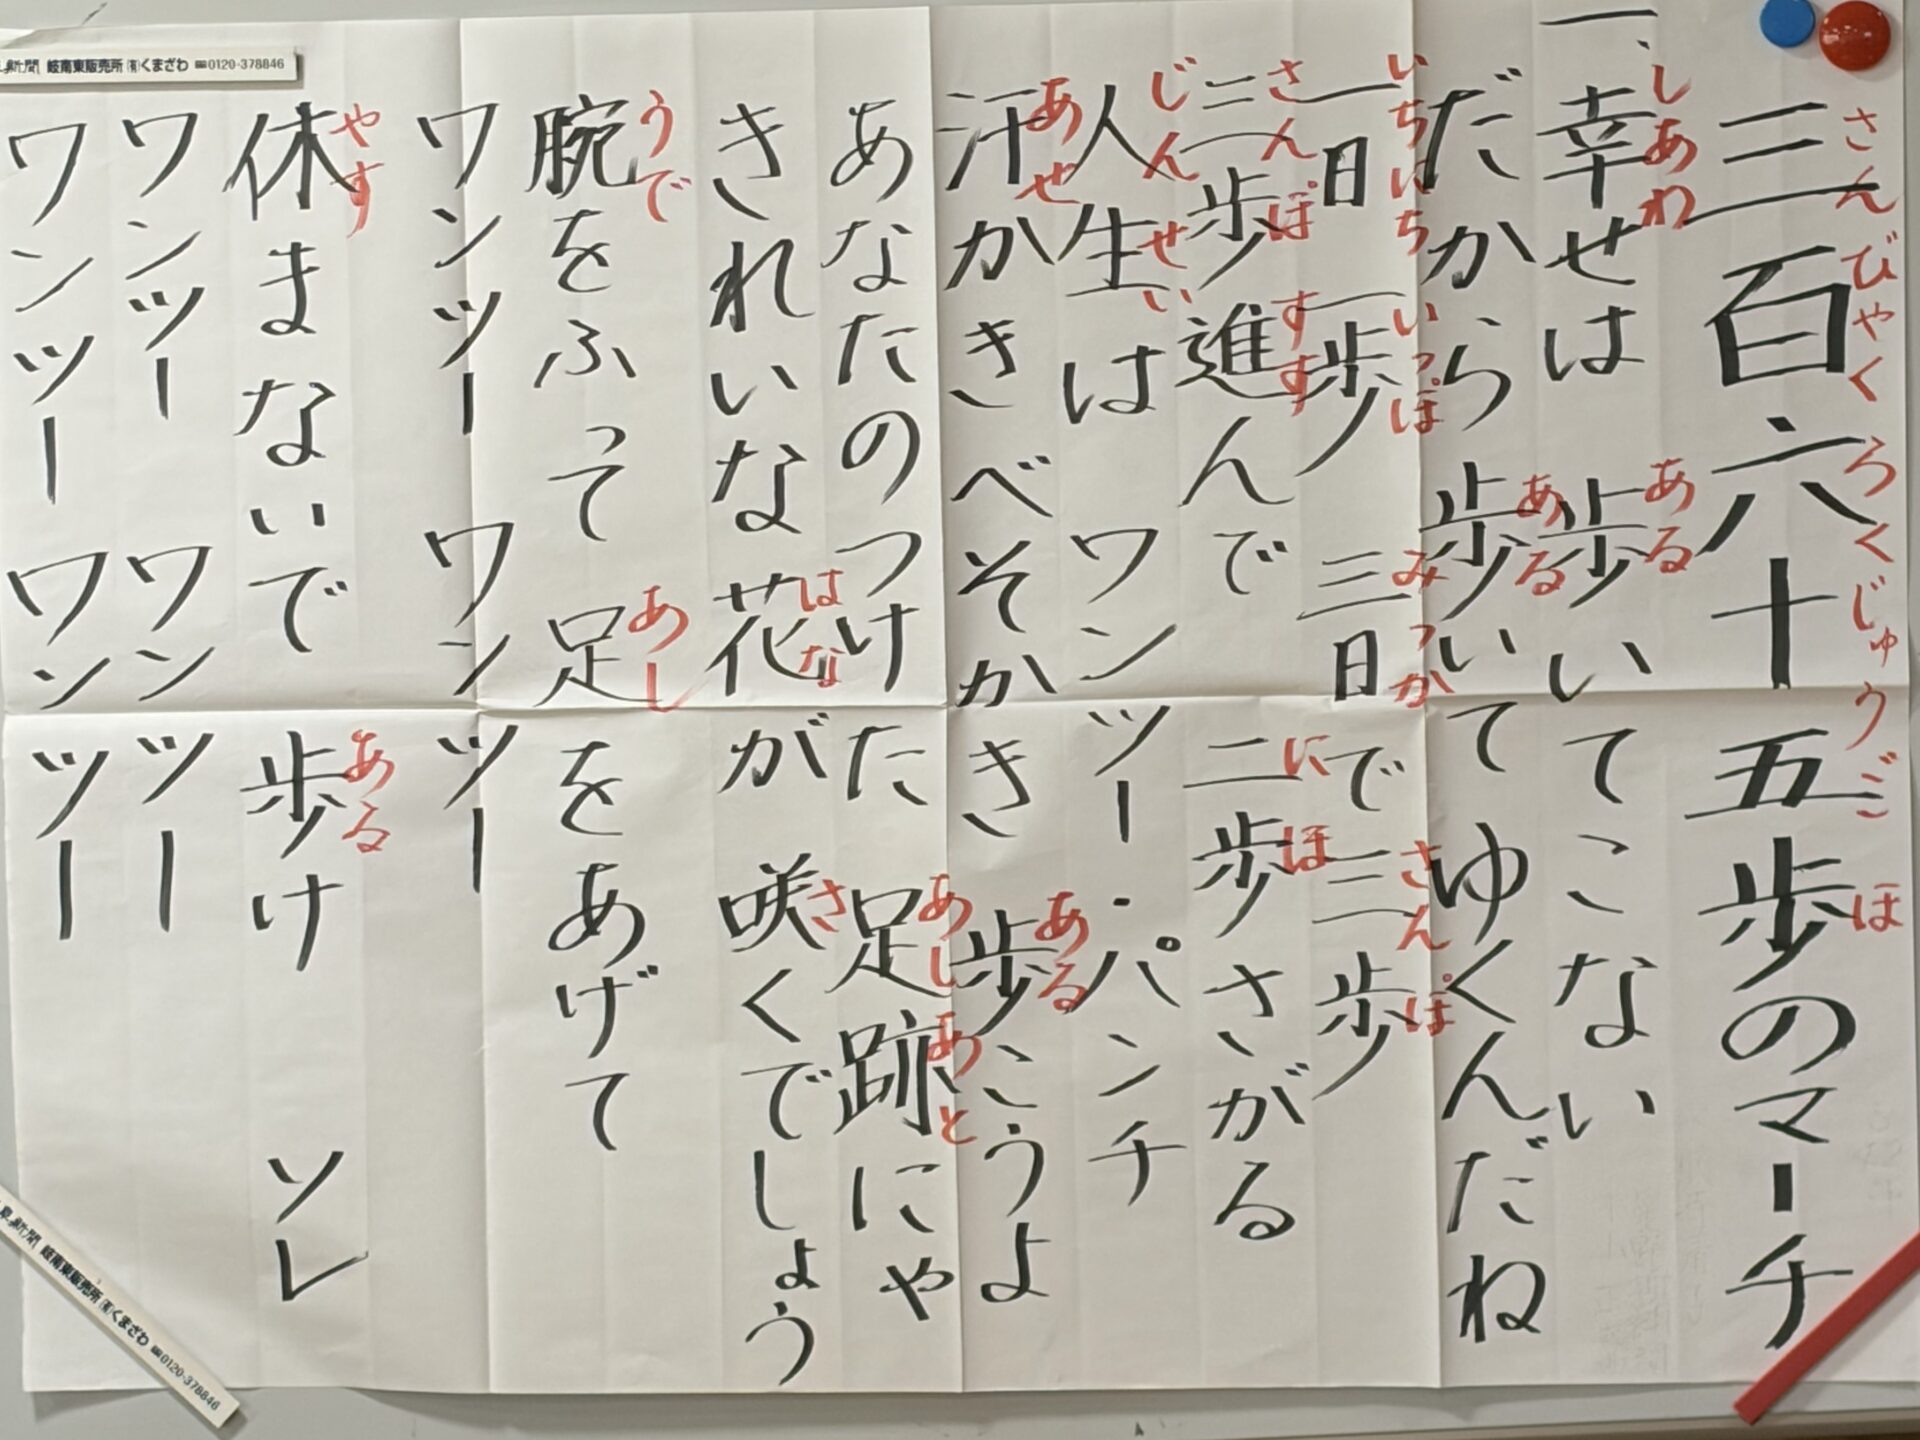 三百六十五歩のマーチ
さんびゃくろくじゅうごほ
一、幸せは 歩いてこない
しあわ ある
だから歩いてゆくんだね
ある
一日一歩 三日で三歩
いちにち いっぽ みっか さんぽ
三歩進んで 二歩さがる
さんぽ すす にほ
人生は ワンツー・パンチ
じんせい
汗かきべそかき 歩こうよ
あせ ある
あなたのつけた 足跡にゃ
あしあと
きれいな花が 咲くでしょう
はな さ
腕をふって 足をあげて
うで あし
ワンツー ワンツー
休まないで 歩け ソレ
やす ある
ワンツー ワンツー
ワンツー ワンツー
新聞 岐南東販売所 (有)くまざわ ☎0120-378846
新聞 岐南東販売所 (有)くまざわ ☎0120-378846